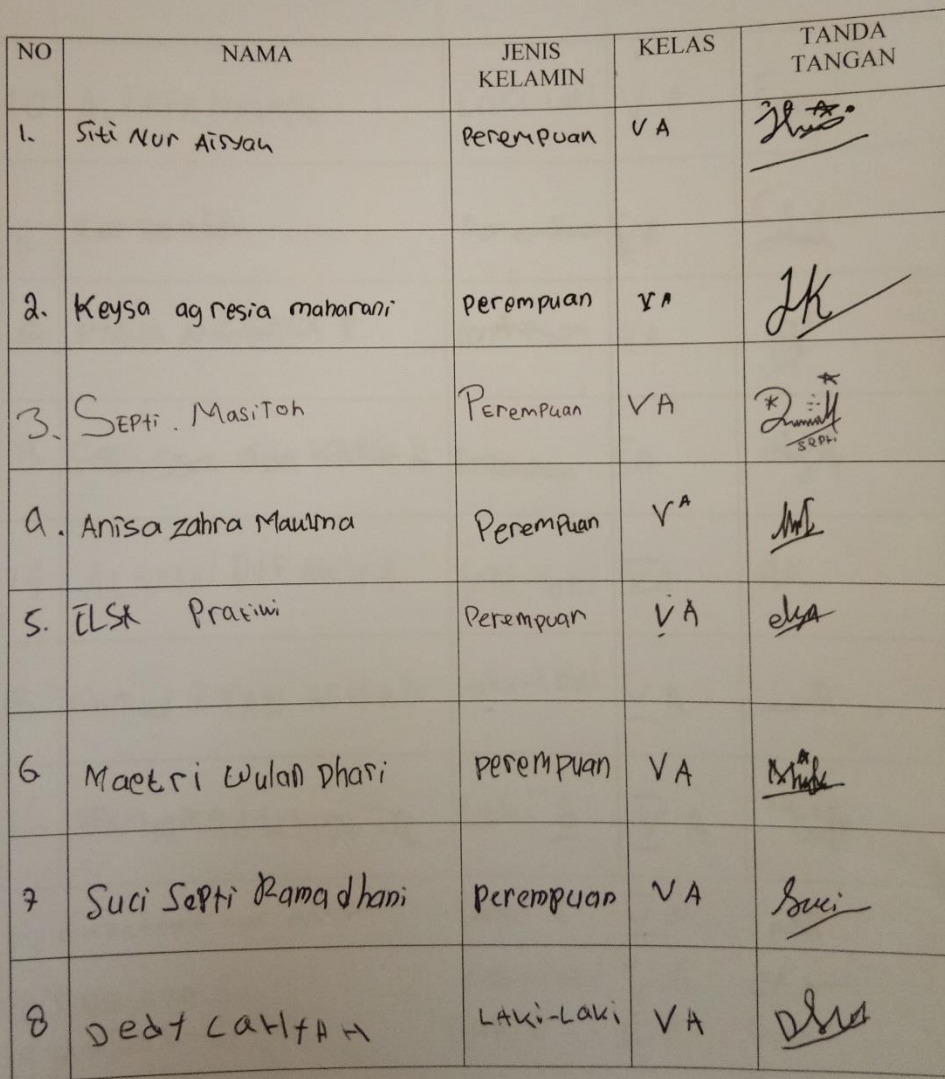 NO NAMA JENIS KELAMIN KELAS TANDA TANGAN
1. Siti Nur Aisyah Perempuan V A
2. Keysa agresia maharani Perempuan V A
3. SEPti. MasiToh PErempuan VA SEPti
4. Anisa zahra Perempuan V A
5. ELSA Pratiwi Perempuan V A elsa
6 Maetri Wulan Dhari perempuan V A
7 Suci Septi Ramadhani perempuan V A Suci
8 LAKi-Laki V A